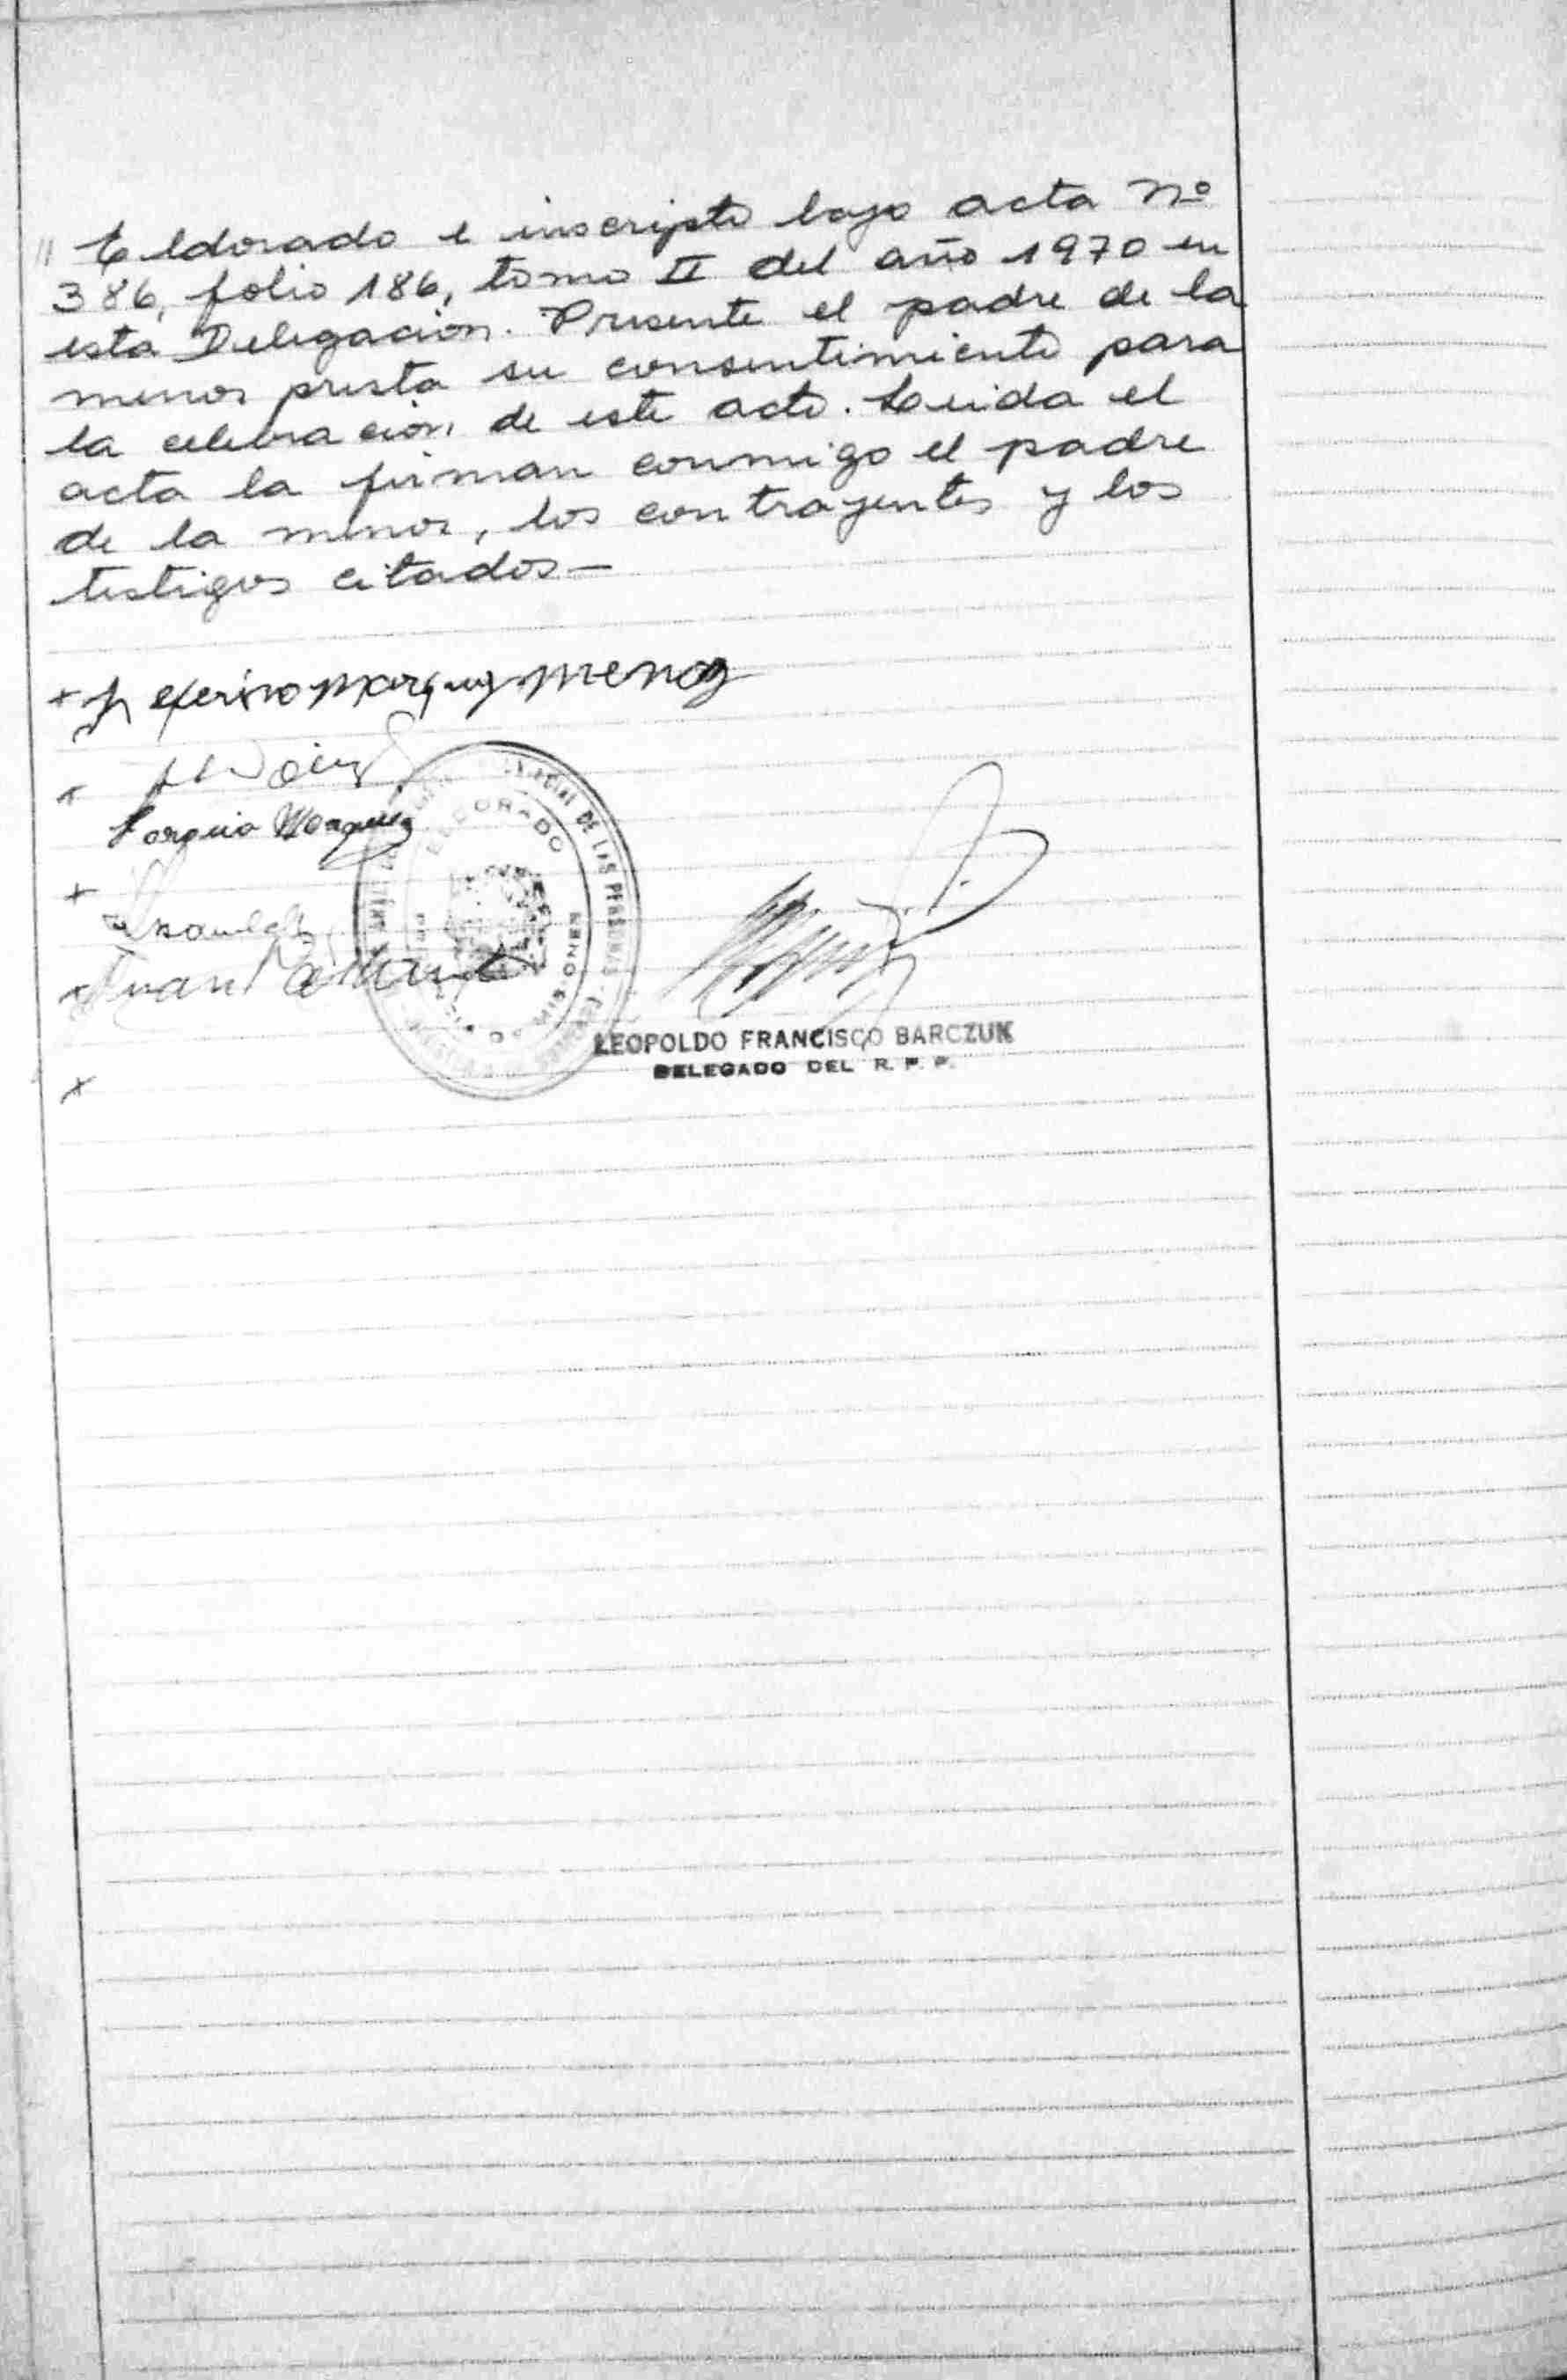 " Eldorado e inscripto bajo acta Nº
386, folio 186, tomo II del año 1970 en
esta Delegación. Presente el padre de la
menor presta su consentimiento para
la celebración de este acto. Leida el
acta la firman conmigo el padre
de la menor, los contrayentes y los
testigos citados—
x
x
x
x Juan
x
ELDORADO
DE LAS PERSONAS
LEOPOLDO FRANCISCO BARCZUK
DELEGADO DEL R. P. P.